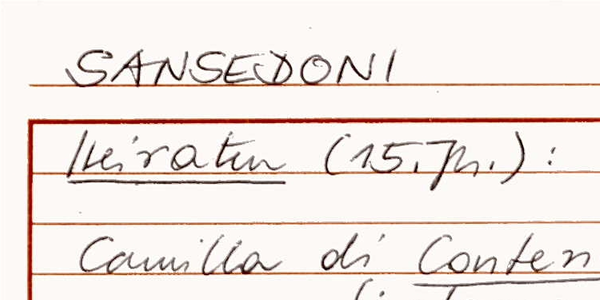 SANSEDONI
Heiraten (15. Jh.):
Camilla di Conten